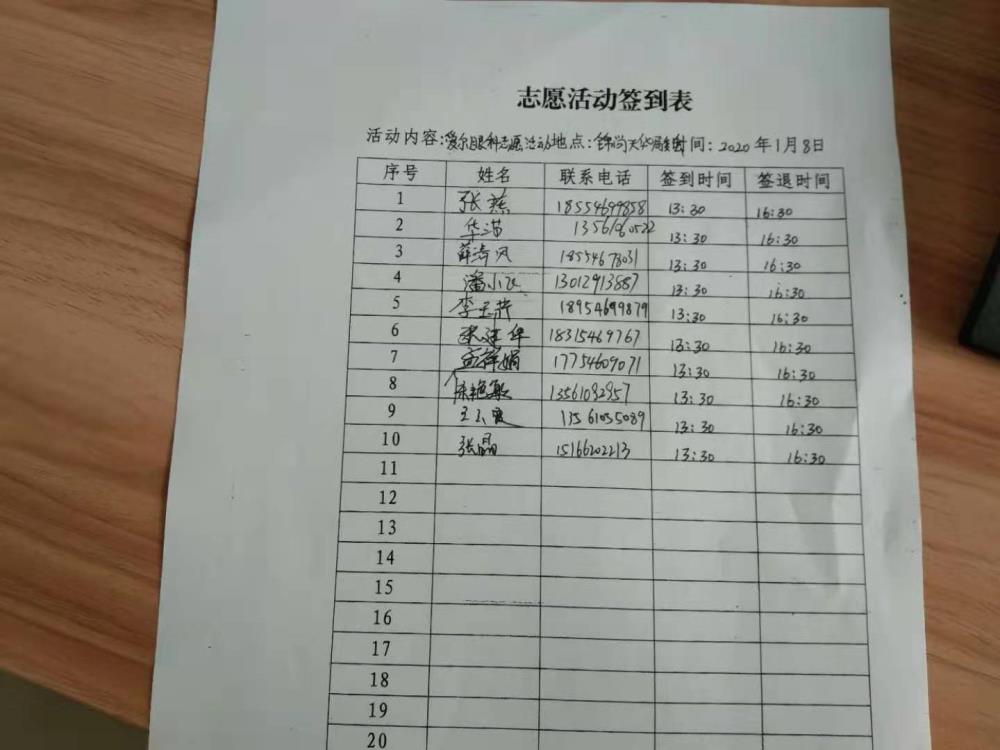 志愿活动签到表
活动内容:爱尔眼科志愿活动地点:锦尚天华 时间:2020年1月8日
序号 姓名 联系电话 签到时间 签退时间
1 张燕 18554699858 13:30 16:30
2 华 13561960522 13:30 16:30
3 薛 风 18554678031 13:30 16:30
4 潘小飞 13012913887 13:30 16:30
5 李玉 18954699879 13:30 16:30
6 建华 18315469767 13:30 16:30
7 娟 17754609071 13:30 16:30
8 艳 13561092957 13:30 16:30
9 王 13561055089 13:30 16:30
10 张晶 15166202213 13:30 16:30
11
12
13
14
15
16
17
18
19
20